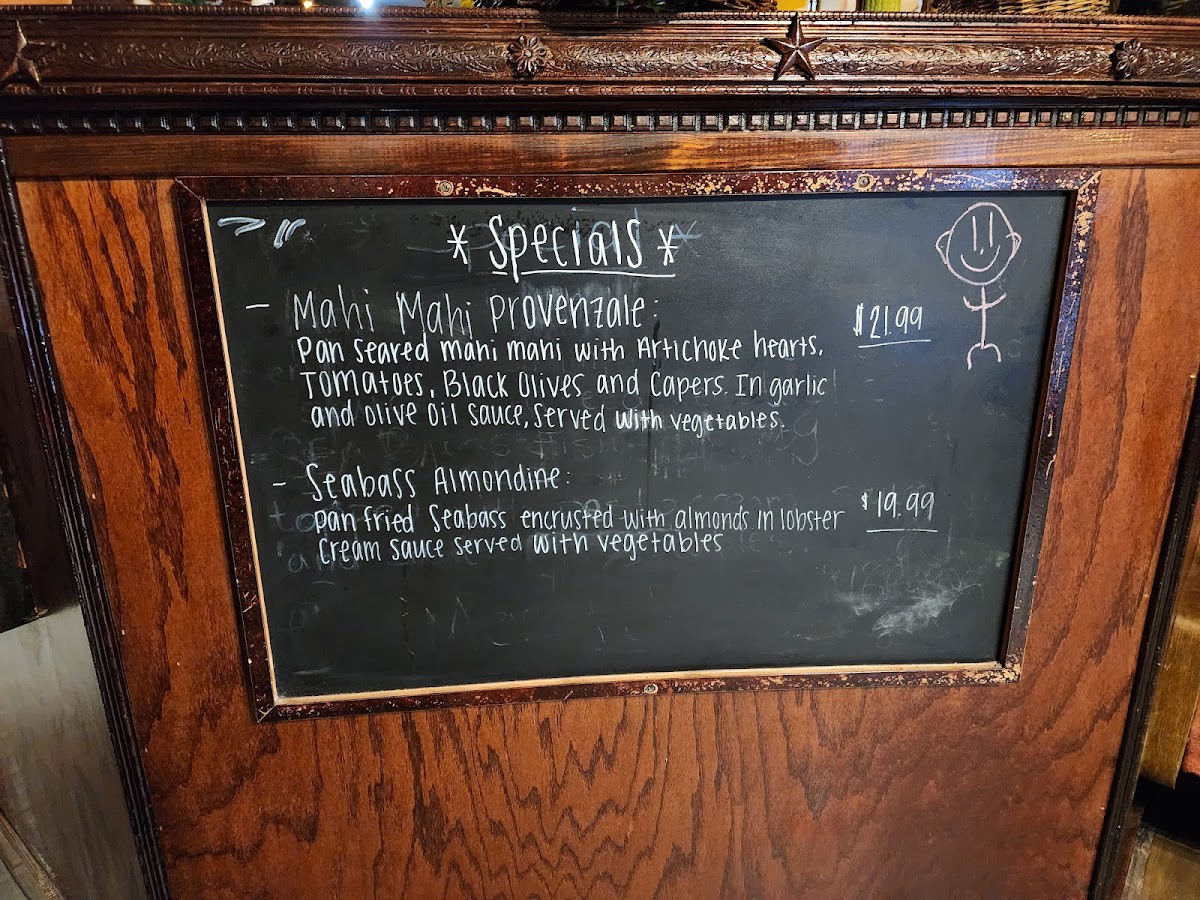 * Specials *
- Mahi Mahi Provenzale: $21.99
Pan Seared mahi mahi with Artichoke hearts,
Tomatoes, Black Olives and Capers. In garlic
and olive oil sauce, served with vegetables.
- Seabass Almondine: $19.99
pan fried Seabass encrusted with almonds in lobster
cream sauce served with vegetables